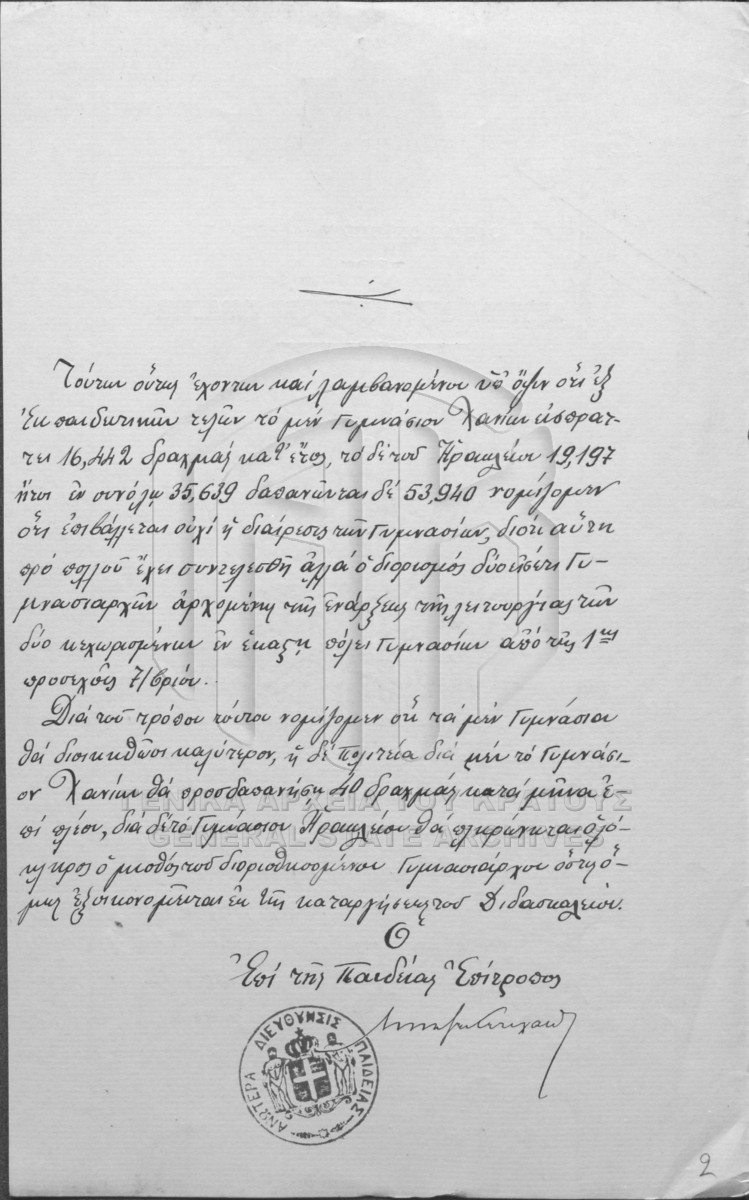 Τούτων οὕτως ἐχόντων καὶ λαμβανομένου ὑπ' ὄψιν ὅτι ἐξ
ἐκπαιδευτικῶν τελῶν τὸ μὲν Γυμνάσιον Χανίων εἰσπράτ-
τει 16,442 δραχμὰς κατ' ἔτος, τὸ δὲ τοῦ Ἡρακλείου 19,197
ἤτοι ἐν συνόλῳ 35,639 δαπανῶνται δὲ 53,940 νομίζομεν
ὅτι ἐπιβάλλεται οὐχὶ ἡ διαίρεσις τῶν Γυμνασίων, διότι αὕτη
πρὸ πολλοῦ ἔχει συντελεσθῆ ἀλλὰ ὁ διορισμὸς δύο εἰσέτι Γυ-
μνασιαρχῶν ἀρχομένης τῆς ἐνάρξεως τῆς λειτουργίας τῶν
δύο κεχωρισμένων ἐν ἑκάστῃ πόλει Γυμνασίων ἀπὸ τῆς 1ης
προσεχοῦς 7/βρίου.
Διὰ τοῦ τρόπου τούτου νομίζομεν ὅτι τὰ μὲν Γυμνάσια
θὰ διοικηθῶσι καλύτερον, ἡ δὲ Πολιτεία διὰ μὲν τὸ Γυμνάσι-
ον Χανίων θὰ προσδαπανήσῃ 40 δραχμὰς κατὰ μῆνα ἐ-
πὶ πλέον, διὰ δὲ τὸ Γυμνάσιον Ἡρακλείου θὰ πληρώνηται ὁλό-
κληρος ὁ μισθὸς τοῦ διορισθησομένου Γυμνασιάρχου ὅστις ὅ-
μως ἐξοικονομεῖται ἐκ τῆς καταργήσεως τοῦ Διδασκαλείου.
Ὁ
Ἐπὶ τῆς Παιδείας Ἐπίτροπος
ΑΝΩΤΕΡΑ ΔΙΕΥΘΥΝΣΙΣ ΠΑΙΔΕΙΑΣ
ΓΕΝΙΚΑ ΑΡΧΕΙΑ ΤΟΥ ΚΡΑΤΟΥΣ
GENERAL STATE ARCHIVES
2